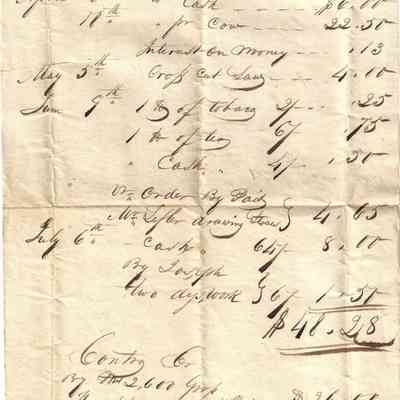 Cash $6.00
18th " pr Cow 22.50
Interest on Money .13
May 5th Cross Cut Saw 4.00
June 9th 1 lb of tobaco 2/- .25
1 lb of tea 6/- .75
" Cash 4/- .50
Order By Paid
Mr Lefler drawing 4.65
July 6th Cash 64/- 8.00
By Joseph
two days work 6/- 1.50
$48.28
Contra Cr
By 2,600